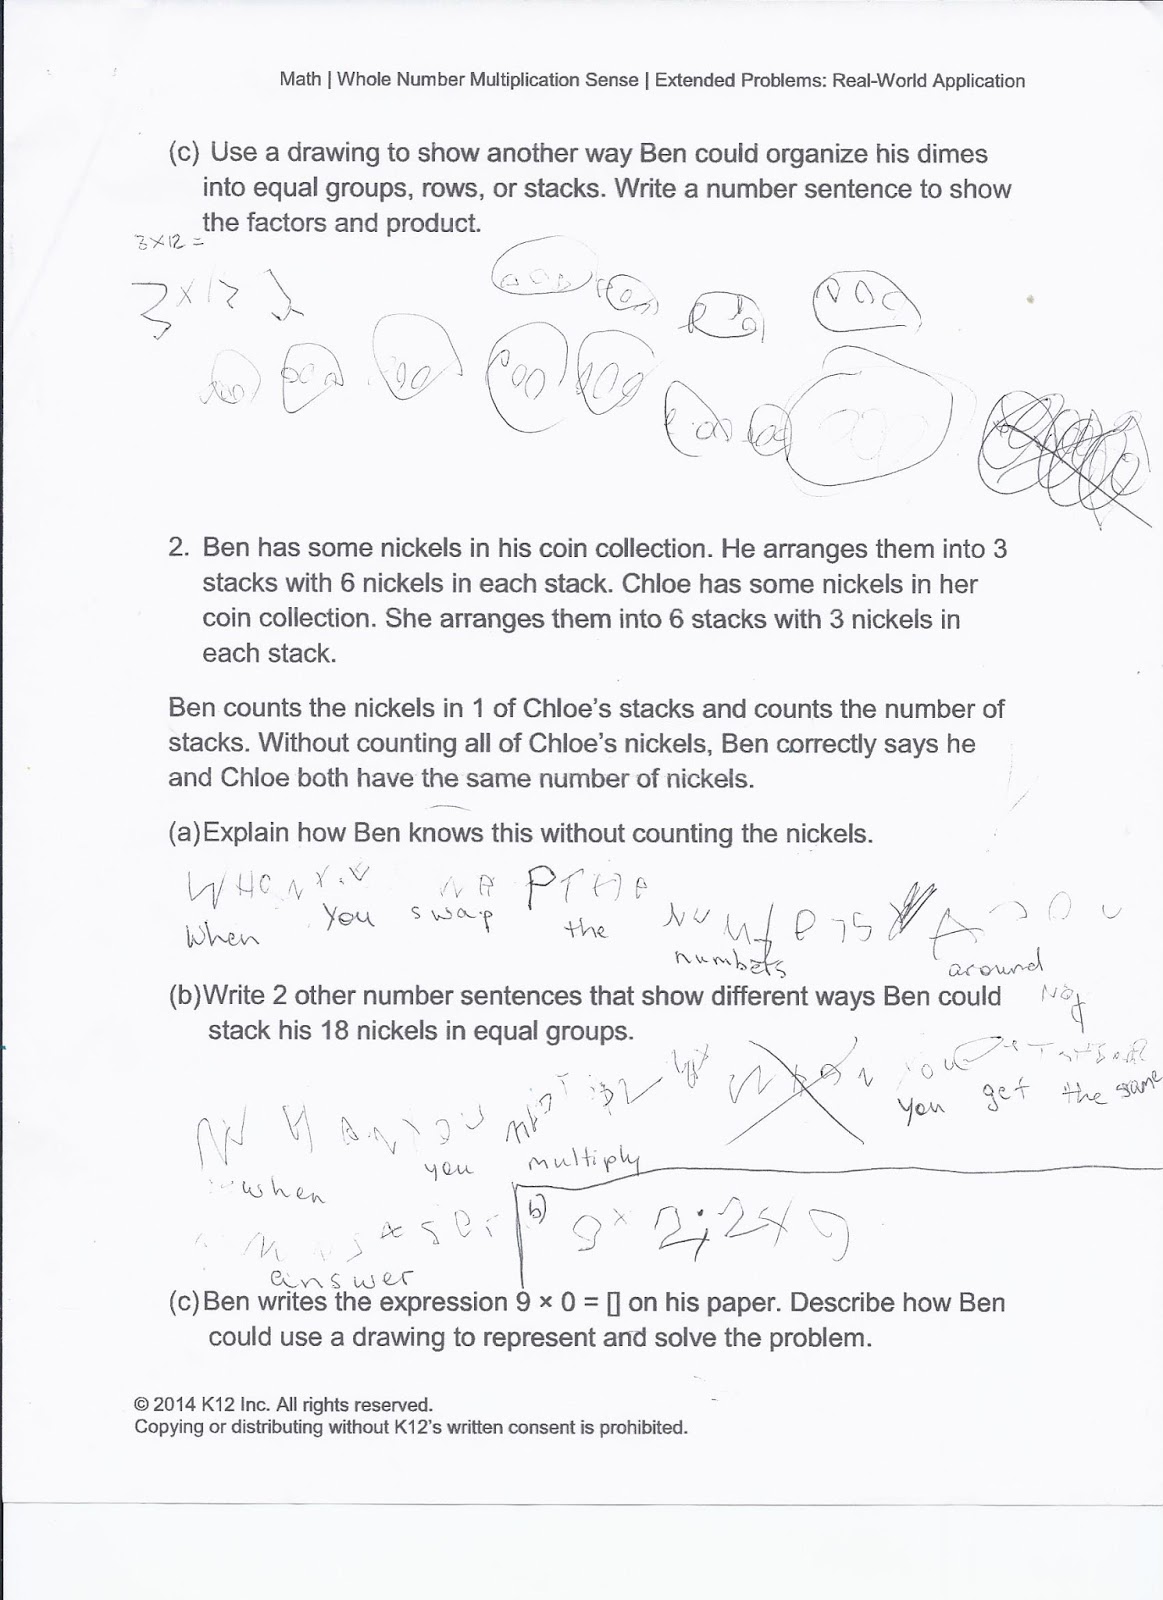 Math | Whole Number Multiplication Sense | Extended Problems: Real-World Application
(c) Use a drawing to show another way Ben could organize his dimes
into equal groups, rows, or stacks. Write a number sentence to show
the factors and product.
3×12 =
3 × 12
2. Ben has some nickels in his coin collection. He arranges them into 3
stacks with 6 nickels in each stack. Chloe has some nickels in her
coin collection. She arranges them into 6 stacks with 3 nickels in
each stack.
Ben counts the nickels in 1 of Chloe's stacks and counts the number of
stacks. Without counting all of Chloe's nickels, Ben correctly says he
and Chloe both have the same number of nickels.
(a) Explain how Ben knows this without counting the nickels.
When you swap the numbers around
(b) Write 2 other number sentences that show different ways Ben could
stack his 18 nickels in equal groups.
you get the same
when you multiply
answer
b) 9 × 2; 2 × 9
(c) Ben writes the expression 9 × 0 = [] on his paper. Describe how Ben
could use a drawing to represent and solve the problem.
© 2014 K12 Inc. All rights reserved.
Copying or distributing without K12's written consent is prohibited.